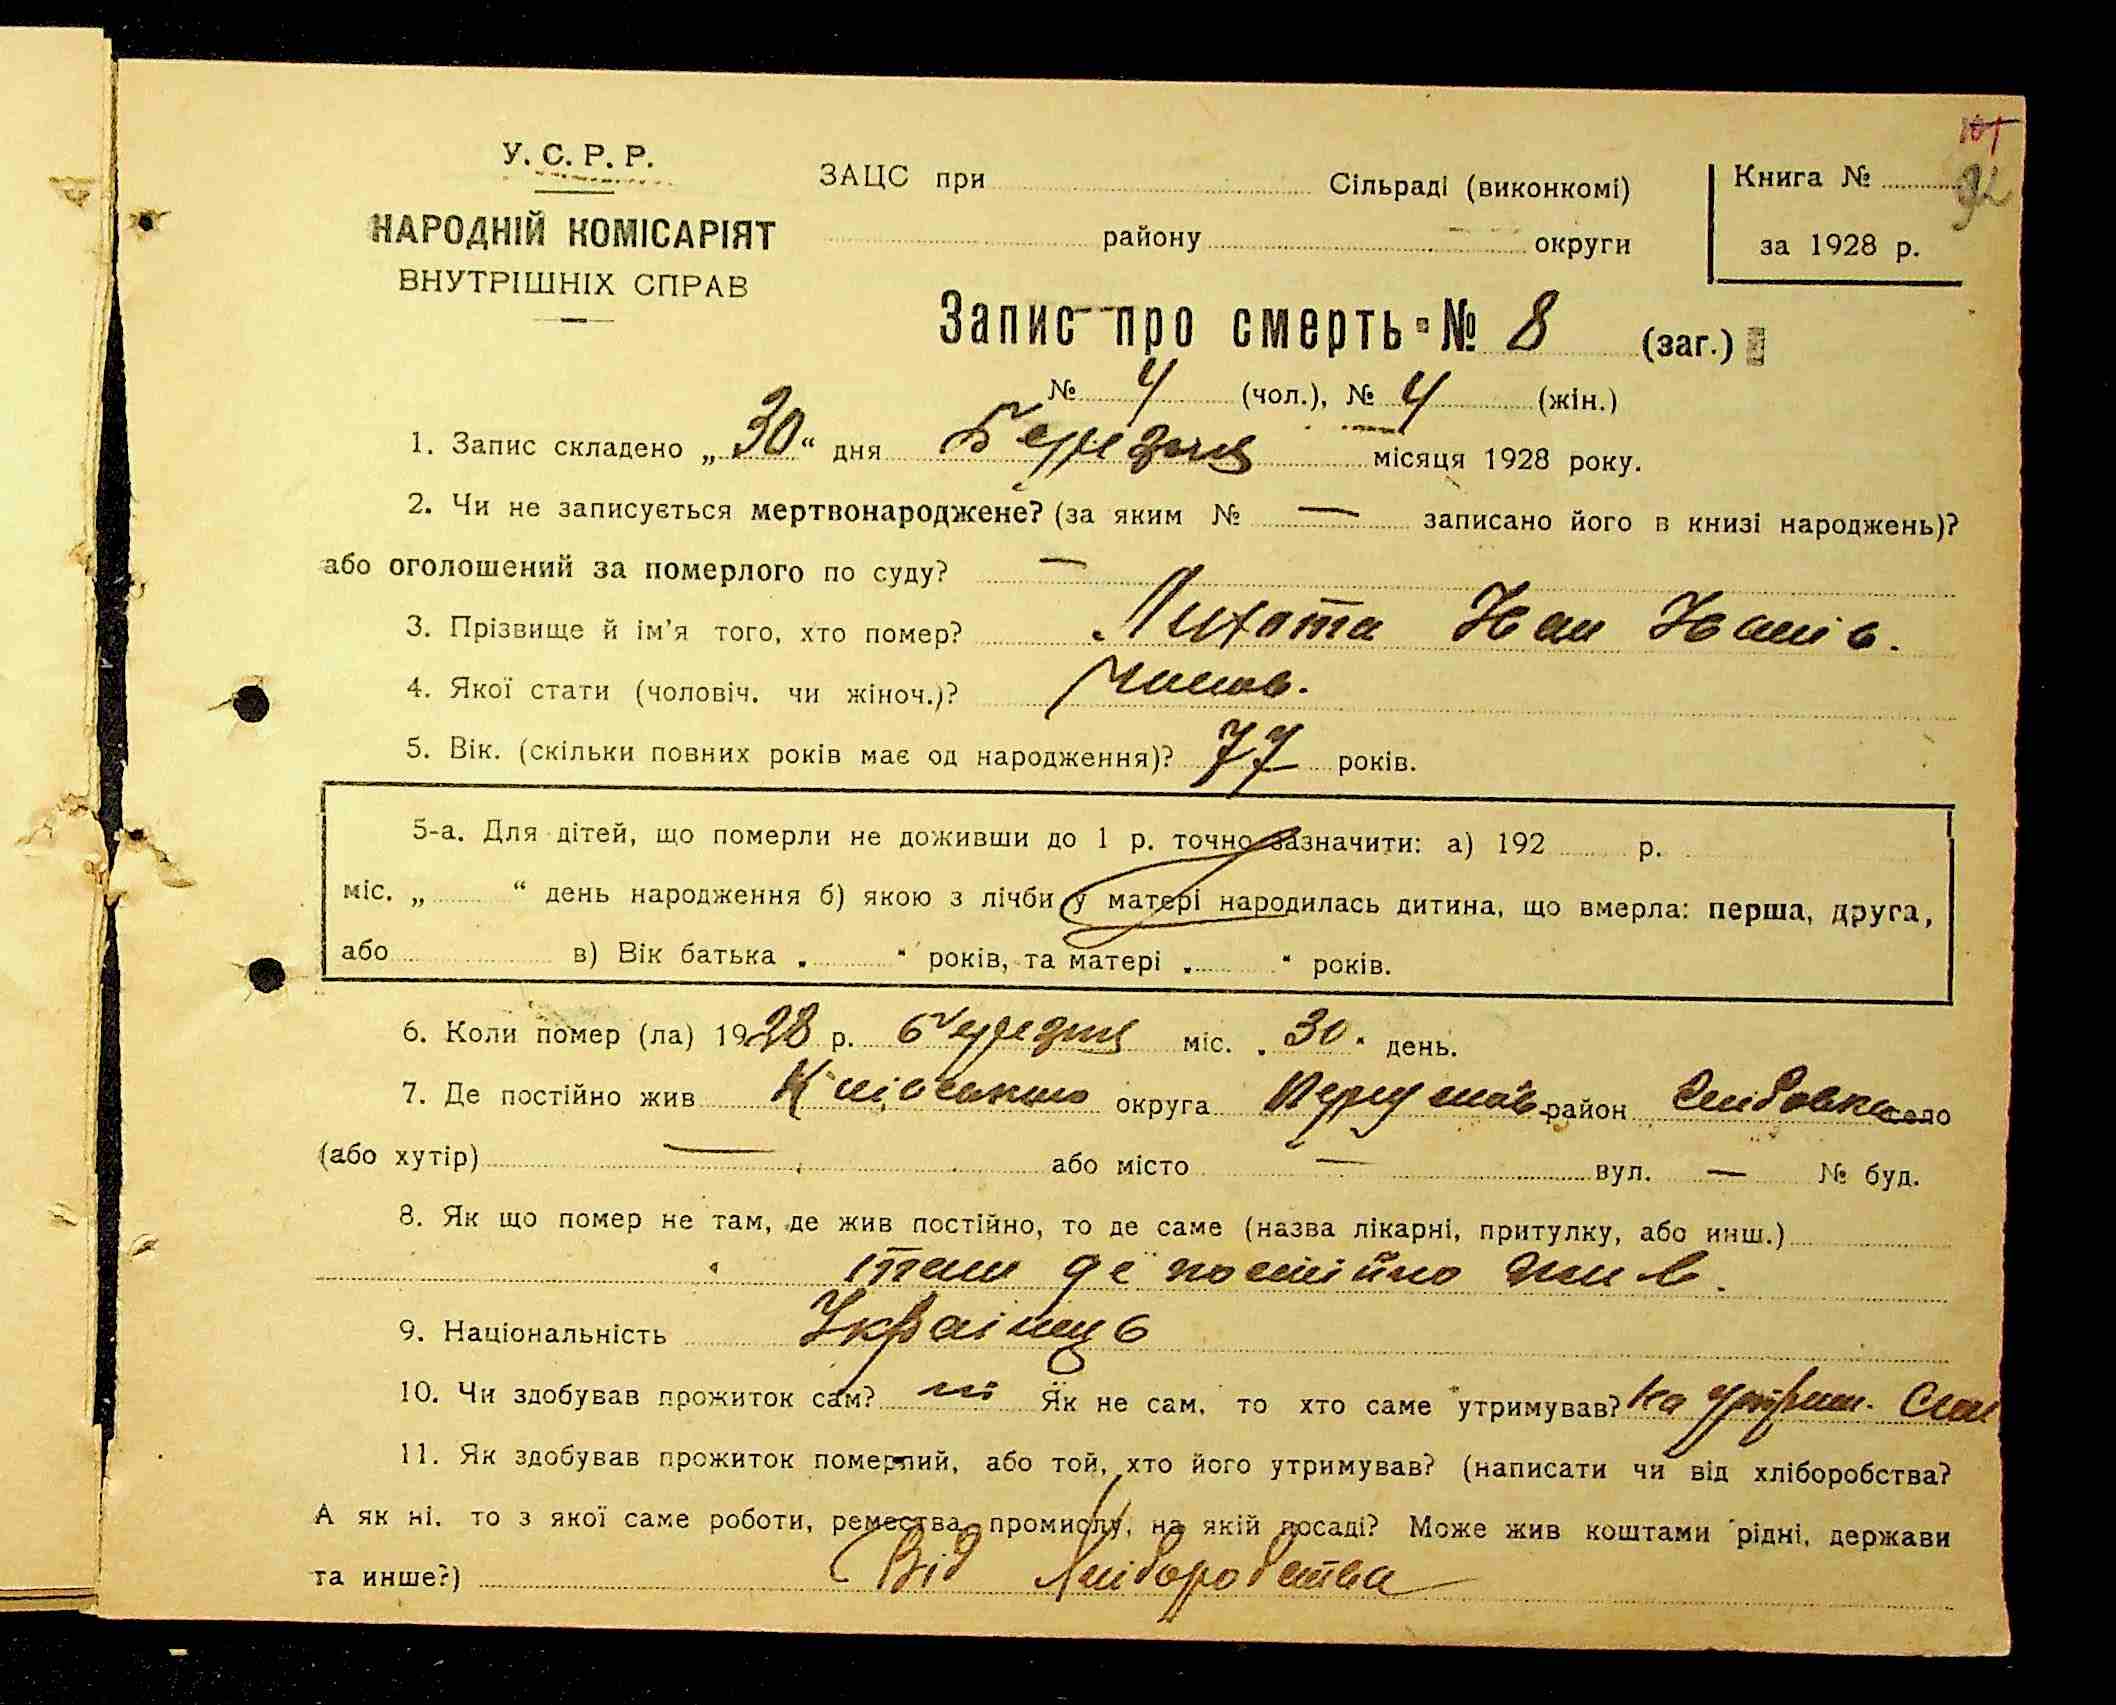 У. С. Р. Р.
НАРОДНІЙ КОМІСАРІЯТ
ВНУТРІШНІХ СПРАВ
ЗАЦС при Сільраді (виконкомі)
району округи
Книга №
за 1928 р.
Запис про смерть № 8 (заг.)
№ 4 (чол.), № 4 (жін.)
1. Запис складено „30“ дня Березня місяця 1928 року.
2. Чи не записується мертвонароджене? (за яким № — записано його в книзі народжень)?
або оголошений за померлого по суду? —
3. Прізвище й ім’я того, хто помер? Лихота Іван Іванів.
4. Якої стати (чоловіч. чи жіноч.)? Чолов.
5. Вік. (скільки повних років має од народження)? 77 років.
5-а. Для дітей, що померли не доживши до 1 р. точно зазначити: а) 192 р.
міс. „ “ день народження б) якою з лічби у матері народилась дитина, що вмерла: перша, друга,
або в) Вік батька „ “ років, та матері „ “ років.
6. Коли помер (ла) 1928 р. березня міс. „30“ день.
7. Де постійно жив Київського округа район село
(або хутір) — або місто — вул. — № буд.
8. Як що помер не там, де жив постійно, то де саме (назва лікарні, притулку, або инш.)
там де постійно жив.
9. Національність Українець
10. Чи здобував прожиток сам? ні Як не сам, то хто саме утримував? на утрим.
11. Як здобував прожиток померлий, або той, хто його утримував? (написати чи від хліборобства?
А як ні. то з якої саме роботи, ремества, промислу, на якій посаді? Може жив коштами рідні, держави
та инше?) Від хліборобства